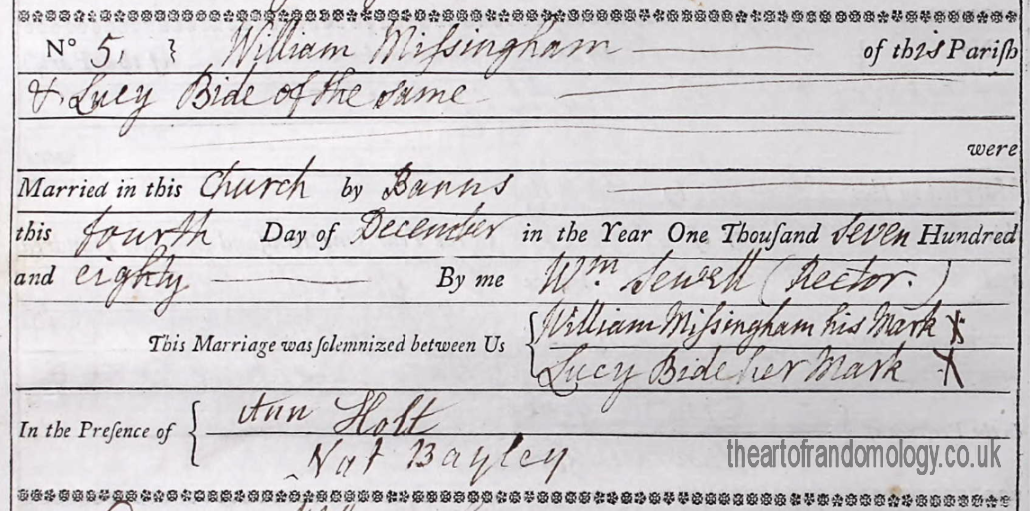 No 5. } William Miſsingham of this Pariſh
& Lucy Bide of the same
were
Married in this Church by Banns
this fourth Day of December in the Year One Thouſand seven Hundred
and eighty By me Wm Sewell (Rector.)
This Marriage was ſolemnized between Us { William Miſsingham his Mark X
Lucy Bide her Mark X
In the Preſence of { Ann Holt
Nat Bayley
theartofrandomology.co.uk